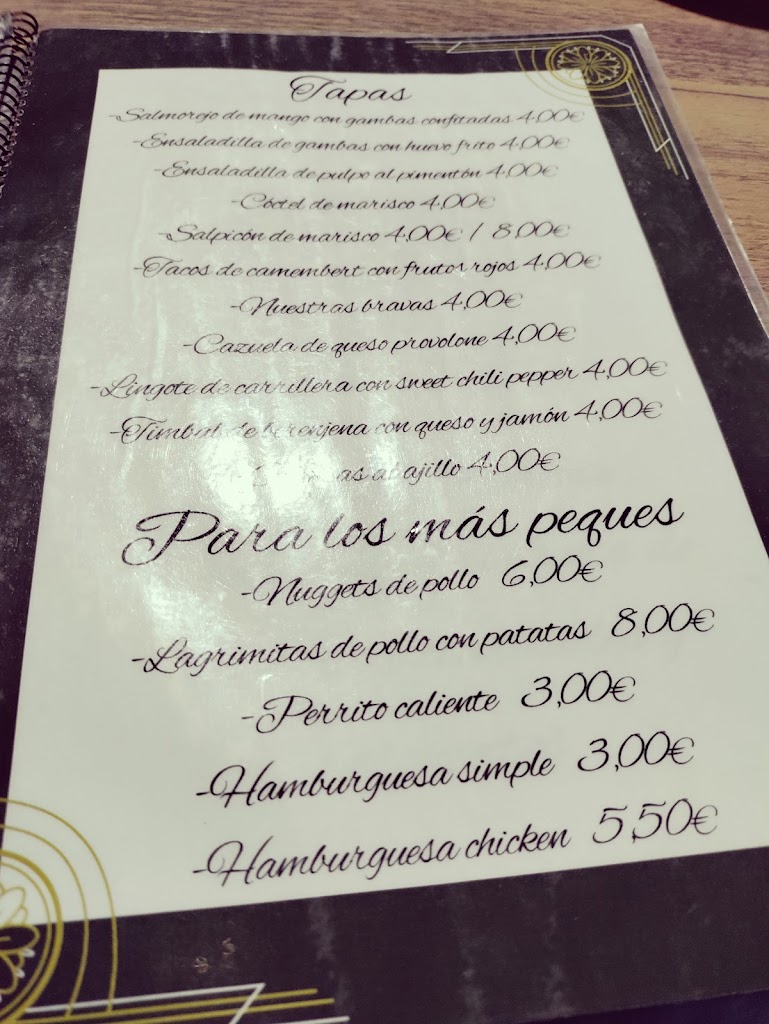 Tapas
-Salmorejo de mango con gambas confitadas 4,00€
-Ensaladilla de gambas con huevo frito 4,00€
-Ensaladilla de pulpo al pimentón 4,00€
-Cóctel de marisco 4,00€
-Salpicón de marisco 4,00€ / 8,00€
-Tacos de camembert con frutos rojos 4,00€
-Nuestras bravas 4,00€
-Cazuela de queso provolone 4,00€
-Lingote de carrillera con sweet chili pepper 4,00€
-Timbal de berenjena con queso y jamón 4,00€
al ajillo 4,00€
Para los más peques
-Nuggets de pollo 6,00€
-Lagrimitas de pollo con patatas 8,00€
-Perrito caliente 3,00€
-Hamburguesa simple 3,00€
-Hamburguesa chicken 5,50€